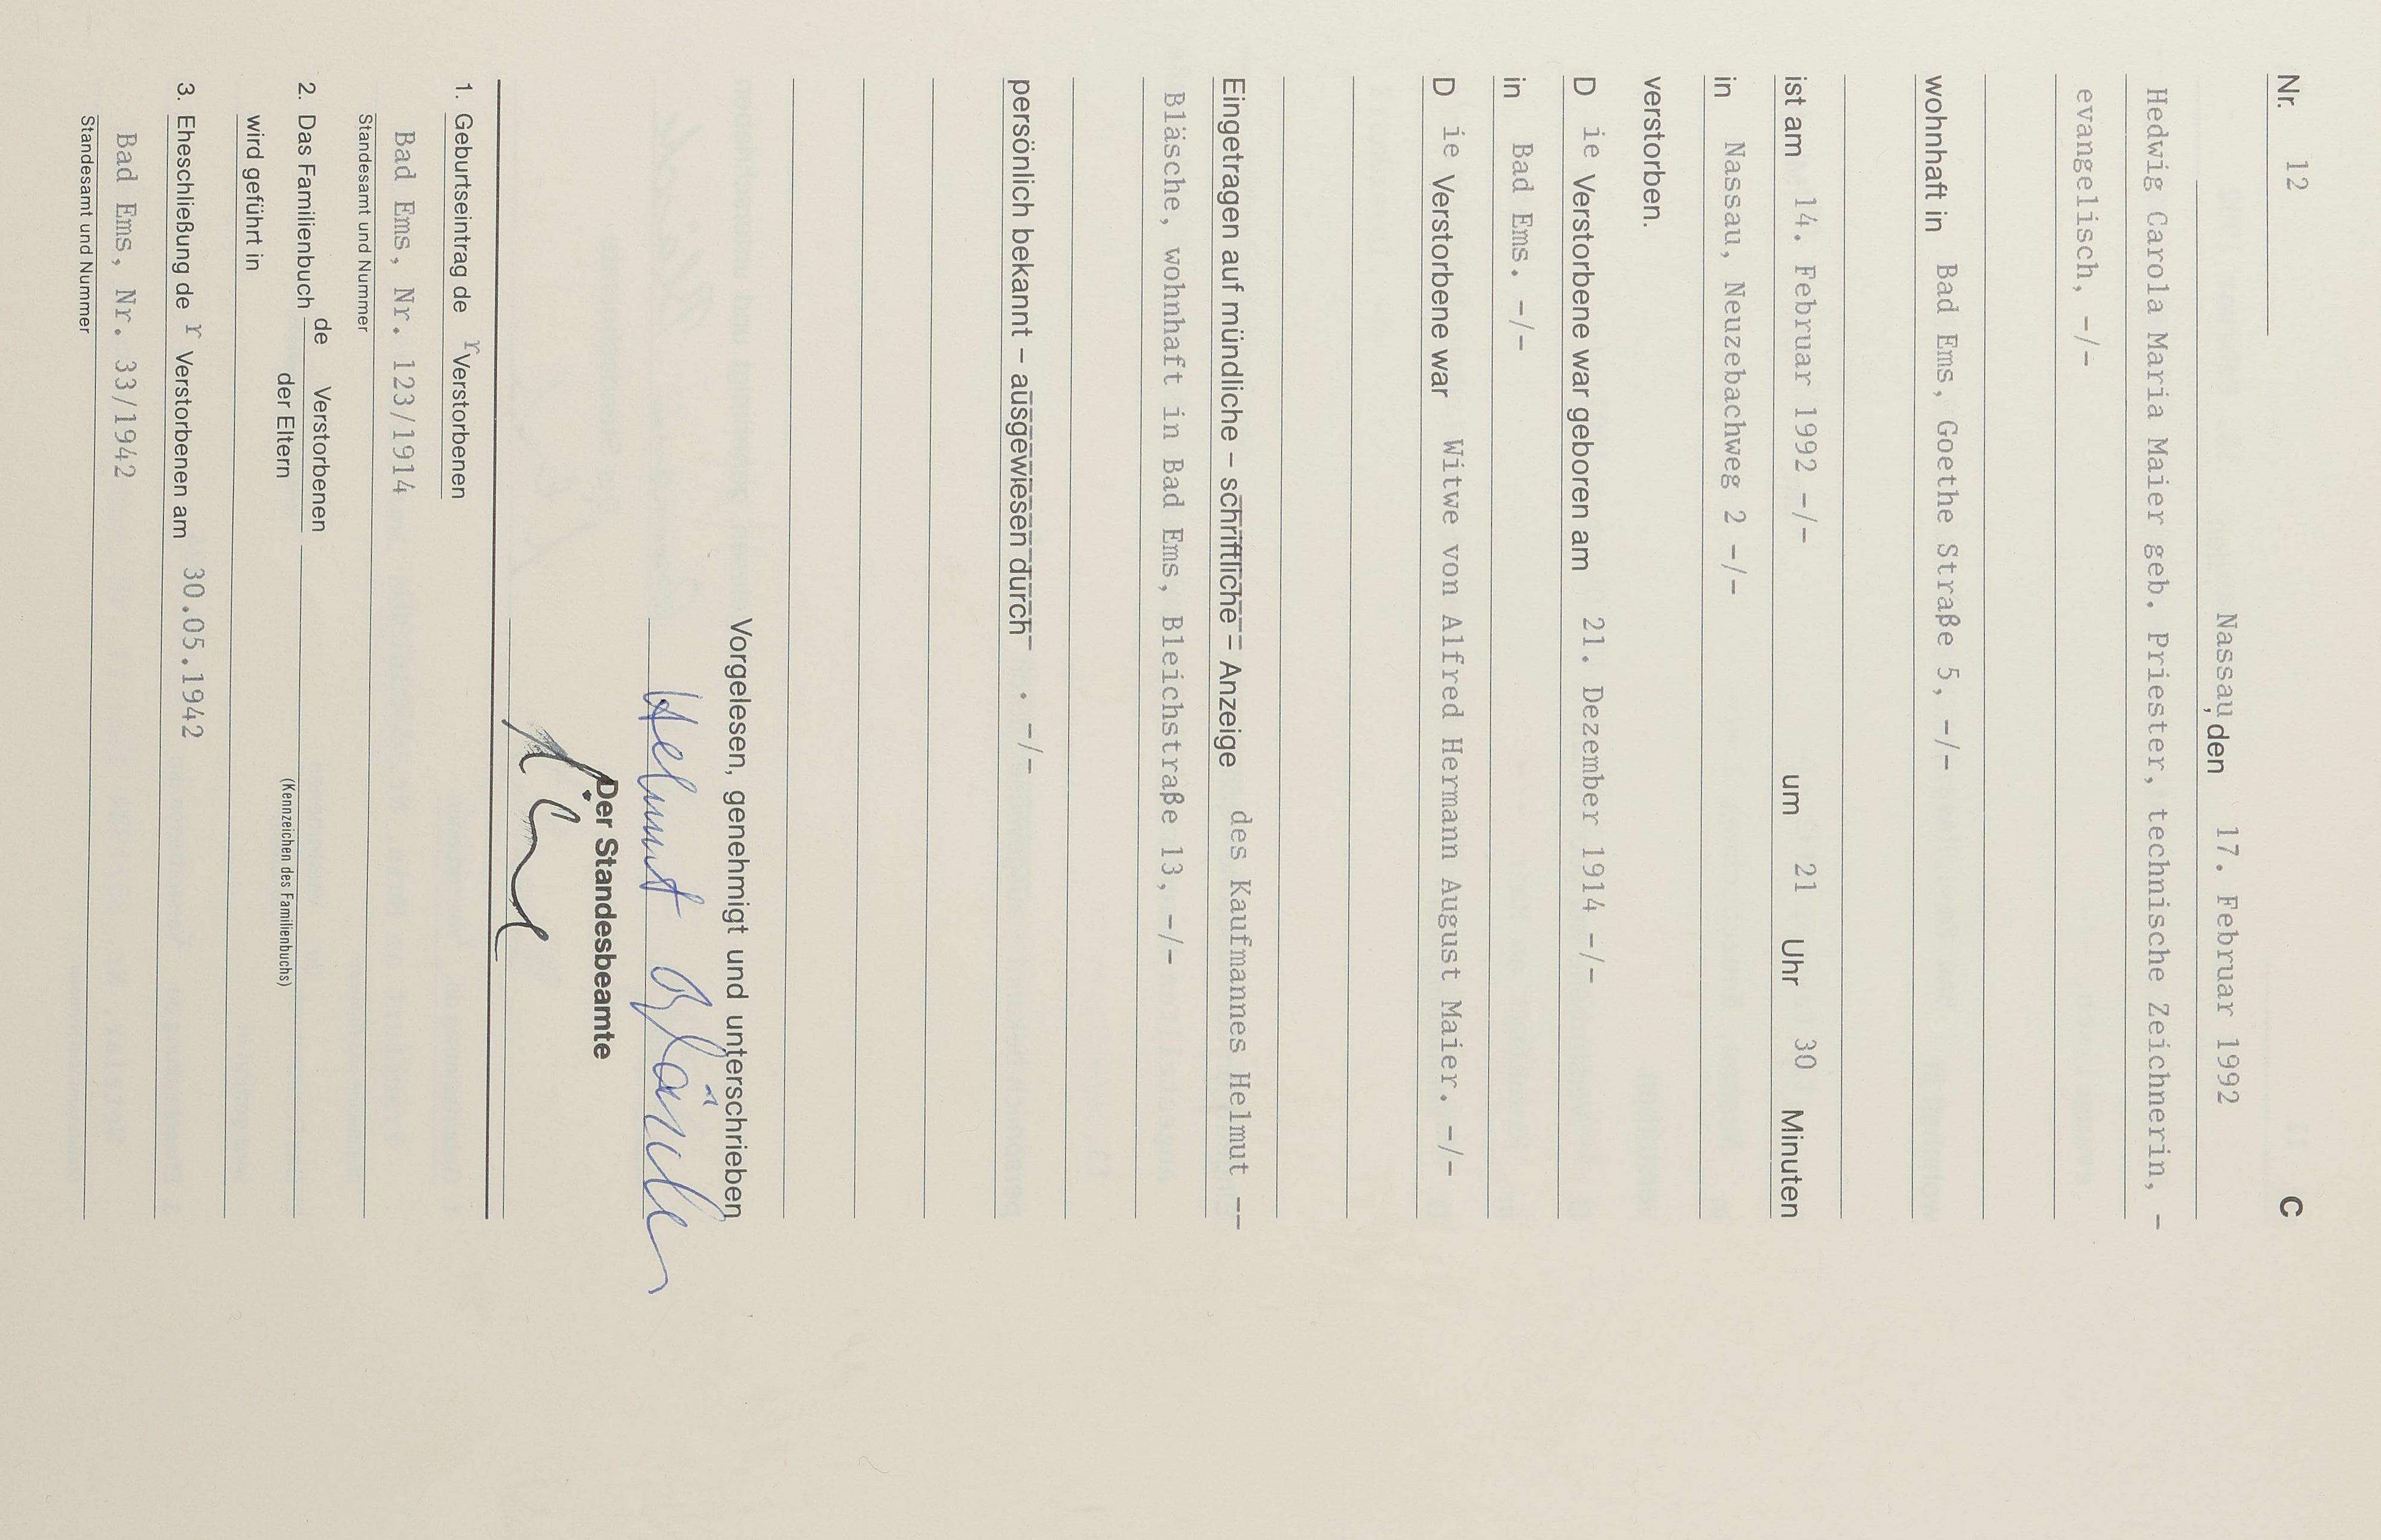 Nr. 12 C
Nassau, den 17. Februar 1992
Hedwig Carola Maria Maier geb. Priester, technische Zeichnerin, -
evangelisch, -/-
wohnhaft in Bad Ems, Goethe Straße 5, -/-
ist am 14. Februar 1992 -/- um 21 Uhr 30 Minuten
in Nassau, Neuzebachweg 2 -/-
verstorben.
D ie Verstorbene war geboren am 21. Dezember 1914 -/-
in Bad Ems. -/-
D ie Verstorbene war Witwe von Alfred Hermann August Maier. -/-
Eingetragen auf mündliche – schriftliche – Anzeige des Kaufmannes Helmut --
Bläsche, wohnhaft in Bad Ems, Bleichstraße 13, -/-
persönlich bekannt – ausgewiesen durch . -/-
Vorgelesen, genehmigt und unterschrieben
Helmut Bläsche
Der Standesbeamte
1. Geburtseintrag de r Verstorbenen
Bad Ems, Nr. 123/1914
Standesamt und Nummer
2. Das Familienbuch de Verstorbenen
der Eltern
(Kennzeichen des Familienbuchs)
wird geführt in
3. Eheschließung de r Verstorbenen am 30.05.1942
Bad Ems, Nr. 33/1942
Standesamt und Nummer